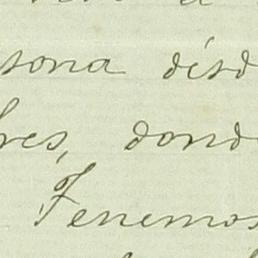 sona désd
res, dond
Tenemos